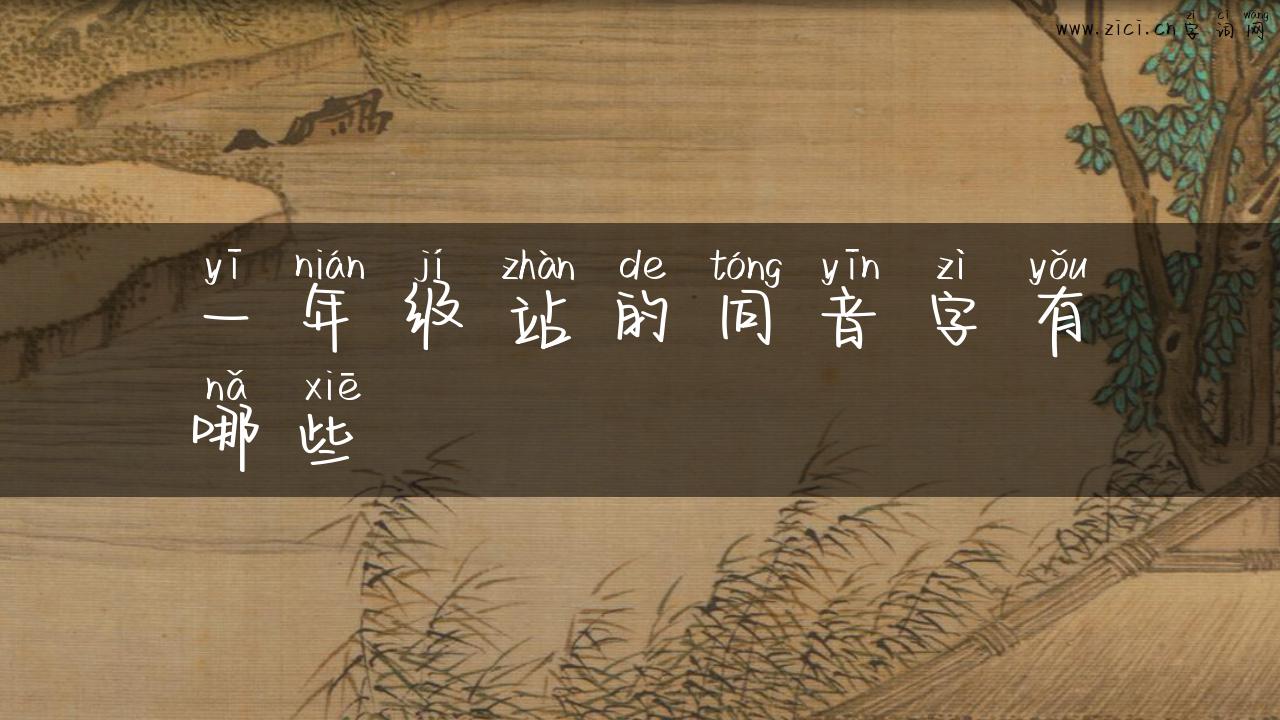 zì cí wǎng
www.zici.cn字词网
yī nián jí zhàn de tóng yīn zì yǒu
一年级站的同音字有
nǎ xiē
哪些